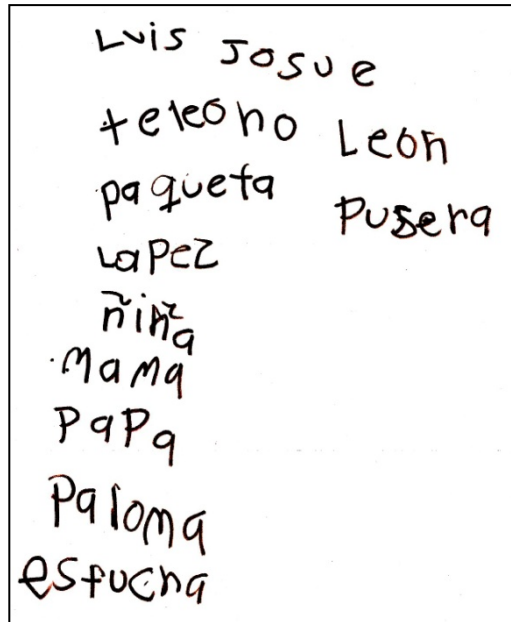 Luis Josue
teleono
Leon
paqueta
Pusera
Lapez
ñiña
mama
PaPa
Paloma
esfucha